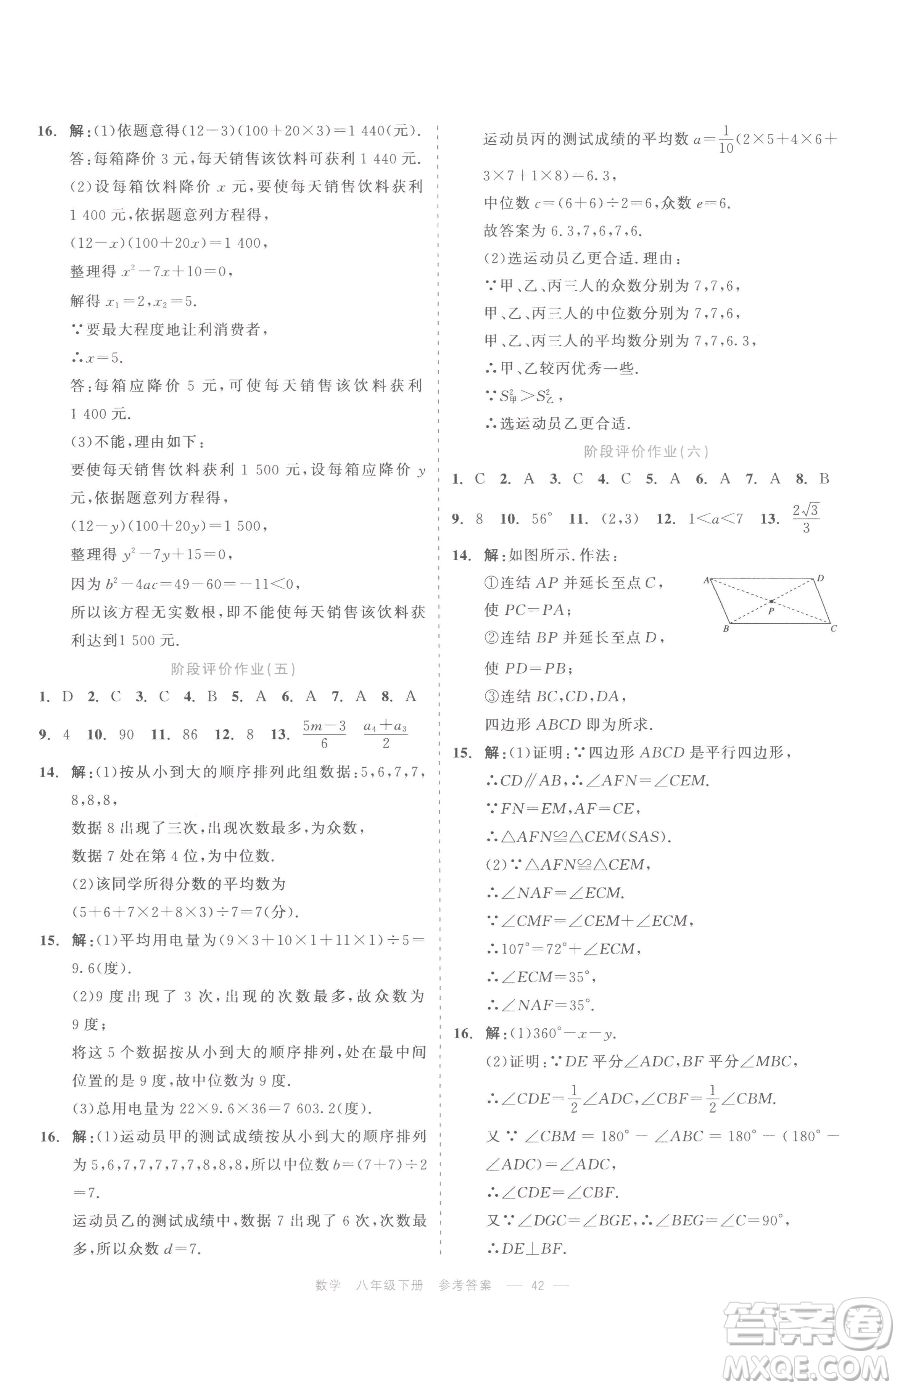 16. 解:(1)依题意得(12－3)(100＋20×3)＝1 440(元).
答:每箱降价 3 元,每天销售该饮料可获利 1 440 元.
(2)设每箱饮料降价 x 元,要使每天销售饮料获利
1 400 元,依据题意列方程得,
(12－x)(100＋20x)＝1 400,
整理得 x²－7x＋10＝0,
解得 x₁＝2,x₂＝5.
∵要最大程度地让利消费者,
∴x＝5.
答:每箱应降价 5 元,可使每天销售该饮料获利
1 400 元.
(3)不能,理由如下:
要使每天销售饮料获利 1 500 元,设每箱应降价 y
元,依据题意列方程得,
(12－y)(100＋20y)＝1 500,
整理得 y²－7y＋15＝0,
因为 b²－4ac＝49－60＝－11＜0,
所以该方程无实数根,即不能使每天销售该饮料获
利达到1 500 元.
阶段评价作业(五)
1. D 2. C 3. C 4. B 5. A 6. A 7. A 8. A
9. 4 10. 90 11. 86 12. 8 13. (5m－3)/6 (a₄＋a₃)/2
14. 解:(1)按从小到大的顺序排列此组数据:5,6,7,7,
8,8,8,
数据 8 出现了三次,出现次数最多,为众数,
数据 7 处在第 4 位,为中位数.
(2)该同学所得分数的平均数为
(5＋6＋7×2＋8×3)÷7＝7(分).
15. 解:(1)平均用电量为(9×3＋10×1＋11×1)÷5＝
9.6(度).
(2)9 度出现了 3 次,出现的次数最多,故众数为
9 度;
将这 5 个数据按从小到大的顺序排列,处在最中间
位置的是 9 度,故中位数为 9 度.
(3)总用电量为 22×9.6×36＝7 603.2(度).
16. 解:(1)运动员甲的测试成绩按从小到大的顺序排列
为 5,6,7,7,7,7,7,8,8,8,所以中位数 b＝(7＋7)÷2
＝7.
运动员乙的测试成绩中,数据 7 出现了 6 次,次数最
多,所以众数 d＝7.
运动员丙的测试成绩的平均数 a＝1/10(2×5＋4×6＋
3×7＋1×8)＝6.3,
中位数 c＝(6＋6)÷2＝6,众数 e＝6.
故答案为 6.3,7,6,7,6.
(2)选运动员乙更合适.理由:
∵甲、乙、丙三人的众数分别为 7,7,6,
甲、乙、丙三人的中位数分别为 7,7,6,
甲、乙、丙三人的平均数分别为 7,7,6.3,
∴甲、乙较丙优秀一些.
∵S²甲＞S²乙,
∴选运动员乙更合适.
阶段评价作业(六)
1. C 2. A 3. C 4. C 5. A 6. A 7. A 8. B
9. 8 10. 56° 11. (2,3) 12. 1＜a＜7 13. 2√3/3
14. 解:如图所示.作法:
①连结 AP 并延长至点 C,
使 PC＝PA;
②连结 BP 并延长至点 D,
使 PD＝PB;
③连结 BC,CD,DA,
四边形 ABCD 即为所求.
A D
P
B C
15. 解:(1)证明:∵四边形 ABCD 是平行四边形,
∴CD∥AB,∴∠AFN＝∠CEM.
∵FN＝EM,AF＝CE,
∴△AFN≌△CEM(SAS).
(2)∵△AFN≌△CEM,
∴∠NAF＝∠ECM.
∵∠CMF＝∠CEM＋∠ECM,
∴107°＝72°＋∠ECM,
∴∠ECM＝35°,
∴∠NAF＝35°.
16. 解:(1)360°－x－y.
(2)证明:∵DE 平分∠ADC,BF 平分∠MBC,
∴∠CDE＝1/2∠ADC,∠CBF＝1/2∠MBC.
又∵∠CBM＝180°－∠ABC＝180°－(180°－
∠ADC)＝∠ADC,
∴∠CDE＝∠CBF.
又∵∠DGC＝∠BGE,∴∠BEG＝∠C＝90°,
∴DE⊥BF.
数学 八年级下册 参考答案 — 42 —
答案圈
MXQE.COM